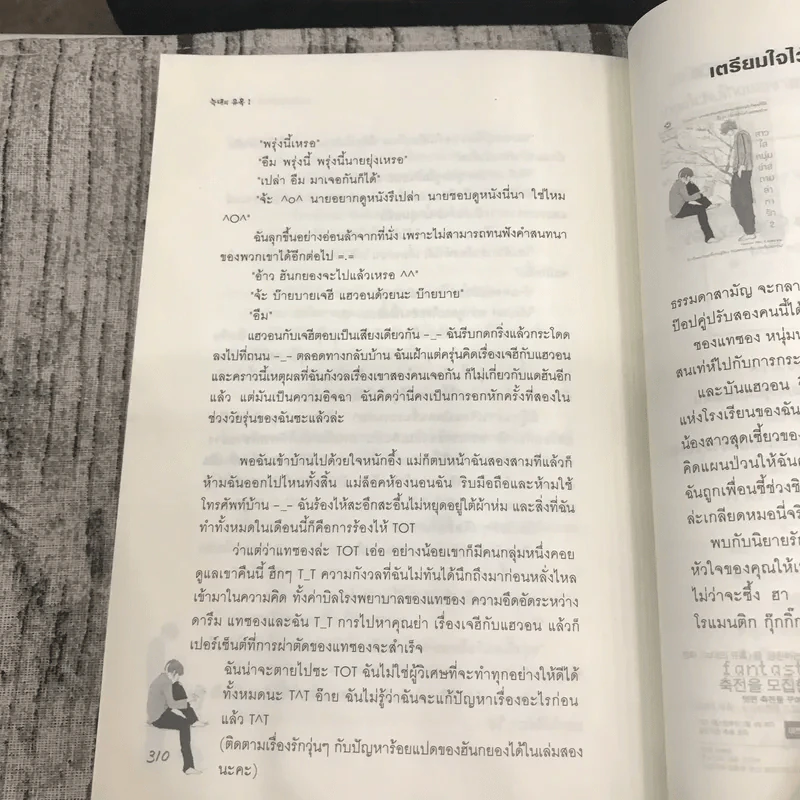 늑대의 유혹 1
"พรุ่งนี้เหรอ"
"อืม พรุ่งนี้ พรุ่งนี้นายยุ่งเหรอ"
"เปล่า อืม มาเจอกันก็ได้"
"จ้ะ ^o^ นายอยากดูหนังรึเปล่า นายชอบดูหนังนี่นา ใช่ไหม
^O^"
ฉันลุกขึ้นอย่างอ่อนล้าจากที่นั่ง เพราะไม่สามารถทนฟังคำสนทนา
ของพวกเขาได้อีกต่อไป =.=
"อ้าว ฮันกยองจะไปแล้วเหรอ ^^"
"จ้ะ บ๊ายบายเจฮี แฮวอนด้วยนะ บ๊ายบาย"
"อืม"
แฮวอนกับเจฮีตอบเป็นเสียงเดียวกัน -_- ฉันรีบกดกริ่งแล้วกระโดด
ลงไปที่ถนน -_- ตลอดทางกลับบ้าน ฉันเฝ้าแต่ครุ่นคิดเรื่องเจฮีกับแฮวอน
และคราวนี้เหตุผลที่ฉันกังวลเรื่องเขาสองคนเจอกัน ก็ไม่เกี่ยวกับแดฮันอีก
แล้ว แต่มันเป็นความอิจฉา ฉันคิดว่านี่คงเป็นการอกหักครั้งที่สองใน
ช่วงวัยรุ่นของฉันซะแล้วล่ะ
พอฉันเข้าบ้านไปด้วยใจหนักอึ้ง แม่ก็ตบหน้าฉันสองสามทีแล้วก็
ห้ามฉันออกไปไหนทั้งสิ้น แม่ล็อคห้องนอนฉัน ริบมือถือและห้ามใช้
โทรศัพท์บ้าน -_- ฉันร้องไห้สะอึกสะอื้นไม่หยุดอยู่ใต้ผ้าห่ม และสิ่งที่ฉัน
ทำทั้งหมดในเดือนนี้ก็คือการร้องไห้ TOT
ว่าแต่ว่าแทซองล่ะ TOT เอ่อ อย่างน้อยเขาก็มีคนกลุ่มหนึ่งคอย
ดูแลเขาคืนนี้ ฮึกๆ T_T ความกังวลที่ฉันไม่ทันได้นึกถึงมาก่อนหลั่งไหล
เข้ามาในความคิด ทั้งค่าบิลโรงพยาบาลของแทซอง ความอึดอัดระหว่าง
ดารึม แทซองและฉัน T_T การไปหาคุณย่า เรื่องเจฮีกับแฮวอน แล้วก็
เปอร์เซ็นต์ที่การผ่าตัดของแทซองจะสำเร็จ
ฉันน่าจะตายไปซะ TOT ฉันไม่ใช่ผู้วิเศษที่จะทำทุกอย่างให้ดีได้
ทั้งหมดนะ T^T อ๊าย ฉันไม่รู้ว่าฉันจะแก้ปัญหาเรื่องอะไรก่อน
แล้ว T^T
(ติดตามเรื่องรักวุ่นๆ กับปัญหาร้อยแปดของฮันกยองได้ในเล่มสอง
นะคะ)
310
เตรียมใจไว้
สาว
ใส
หนุ่ม
ธรรมดาสามัญ จะกลา
ป๊อปคู่ปรับสองคนนี้ได้
ซองแทซอง หนุ่มน
สนเท่ห์ไปกับการกระ
และบันแฮวอน
แห่งโรงเรียนของฉัน
น้องสาวสุดเซี้ยวของ
คิดแผนป่วนให้ฉัน
ฉันถูกเพื่อนซี้ช่วงชิ
ล่ะเกลียดหมอนี่จริ
พบกับนิยายรัก
หัวใจของคุณให้เ
ไม่ว่าจะซึ้ง ฮา
โรแมนติก กุ๊กกิ๊ก
fantast
축전을 모집